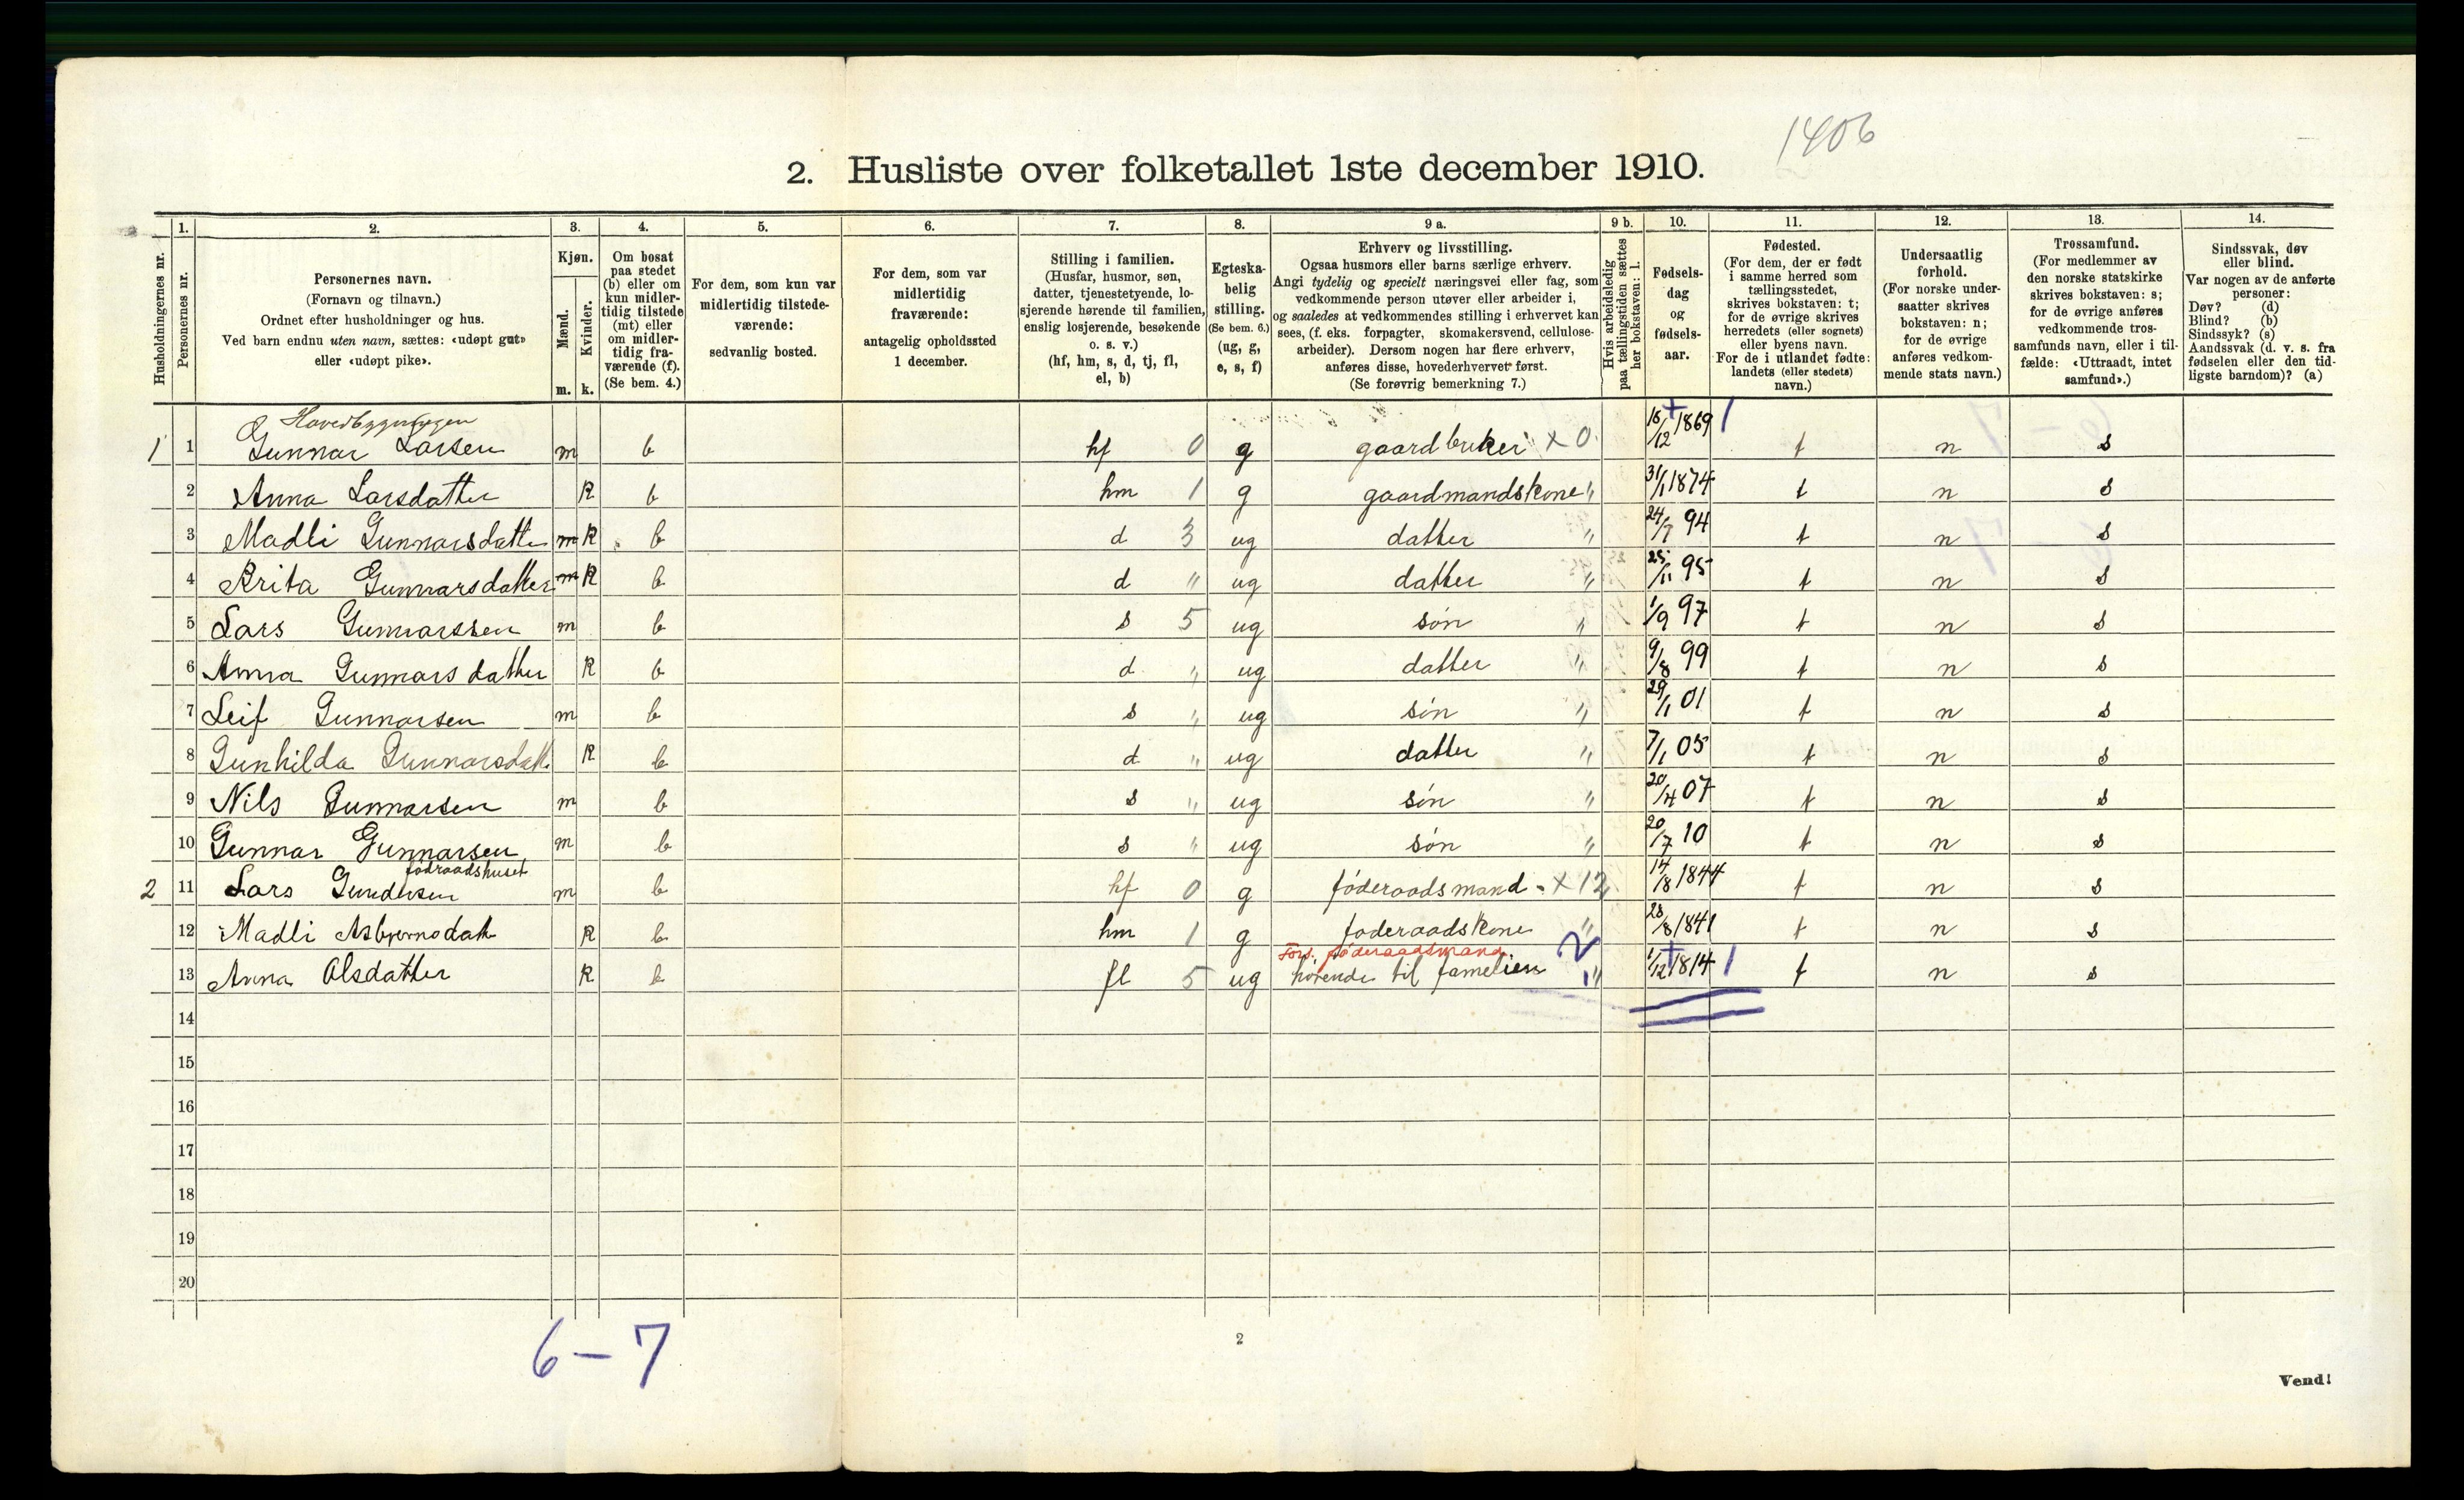 1406
2. Husliste over folketallet 1ste december 1910.
Husholdningernes nr.
1. Personernes nr.
2. Personernes navn. (Fornavn og tilnavn.) Ordnet efter husholdninger og hus. Ved barn endnu uten navn, sættes: «udøpt gut» eller «udøpt pike».
3. Kjøn. Mænd. m. Kvinder. k.
4. Om bosat paa stedet (b) eller om kun midlertidig tilstede (mt) eller om midlertidig fraværende (f). (Se bem. 4.)
5. For dem, som kun var midlertidig tilstedeværende: sedvanlig bosted.
6. For dem, som var midlertidig fraværende: antagelig opholdssted 1 december.
7. Stilling i familien. (Husfar, husmor, søn, datter, tjenestetyende, losjerende hørende til familien, enslig losjerende, besøkende o. s. v.) (hf, hm, s, d, tj, fl, el, b)
8. Egteskabelig stilling. (Se bem. 6.) (ug, g, e, s, f)
9 a. Erhverv og livsstilling. Ogsaa husmors eller barns særlige erhverv. Angi tydelig og specielt næringsvei eller fag, som vedkommende person utøver eller arbeider i, og saaledes at vedkommendes stilling i erhvervet kan sees, (f. eks. forpagter, skomakersvend, cellulosearbeider). Dersom nogen har flere erhverv, anføres disse, hovederhvervet først. (Se forøvrig bemerkning 7.)
9 b. Hvis arbeidsledig paa tællingstiden sættes her bokstaven: l.
10. Fødselsdag og fødselsaar.
11. Fødested. (For dem, der er født i samme herred som tællingsstedet, skrives bokstaven: t; for de øvrige skrives herredets (eller sognets) eller byens navn. For de i utlandet fødte: landets (eller stedets) navn.)
12. Undersaatlig forhold. (For norske undersaatter skrives bokstaven: n; for de øvrige anføres vedkommende stats navn.)
13. Trossamfund. (For medlemmer av den norske statskirke skrives bokstaven: s; for de øvrige anføres vedkommende trossamfunds navn, eller i tilfælde: «Uttraadt, intet samfund».)
14. Sindssvak, døv eller blind. Var nogen av de anførte personer: Døv? (d) Blind? (b) Sindssyk? (s) Aandssvak (d. v. s. fra fødselen eller den tidligste barndom)? (a)
Hovedbygningen
1 1 Gunnar Larsen m b hf 0 g gaardbruker x 0 16/12 + 1869 1 t n s
2 Anna Larsdatter k b hm 1 g gaardmandskone " 31/1 1874 t n s
3 Madli Gunnarsdatte m k b d 3 ug datter " 24/7 94 t n s
4 Brita Gunnarsdatter m k b d " ug datter " 25/11 95 t n s
5 Lars Gunnarssen m b s 5 ug søn " 1/9 97 t n s
6 Anna Gunnarsdatter k b d " ug datter " 9/8 99 t n s
7 Leif Gunnarsen m b s " ug søn " 29/1 01 t n s
8 Gunhilda Gunnarsdatt. k b d " ug datter " 7/1 05 t n s
9 Nils Gunnarsen m b s " ug søn " 20/4 07 t n s
10 Gunnar Gunnarsen m b s " ug søn " 20/7 10 t n s
fødraadshuset
2 11 Lars Gundersen m b hf 0 g føderaadsmand - x 12 14/8 1844 t n s
12 Madli Asbjørnsdatt k b hm 1 g føderaadskone " 28/8 1841 t n s
Fors. føderaadsmand 2
13 Anna Olsdatter k b fl 5 ug hørende til famelien " 1/12 + 1814 1 t n s
14
15
16
17
18
19
20
6 – 7
2
Vend!